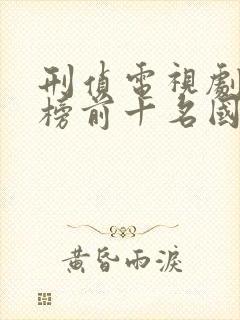 刑偵電視劇
榜前十名國
黃昏雨淚